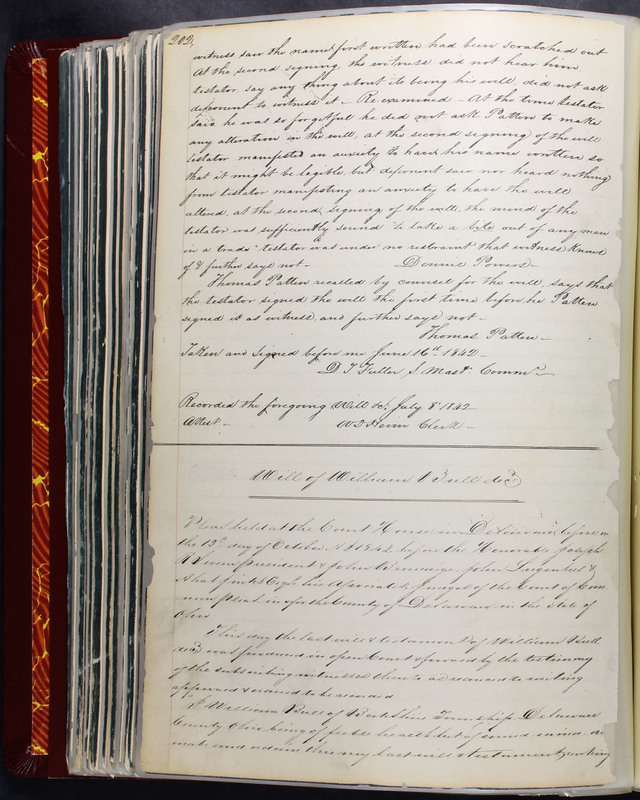 202,
witness saw the name first written had been scratched out
At the second signing, the witness did not hear him
testator, say any thing about its being his will, did not ask
deponent to witness it – Re examined – At the time testator
said he was so forgetful he did not ask Patten to make
any alteration in the will, at the second signing of the will
testator manifested an anxiety to have his name written so
that it might be legible, but deponent saw nor heard nothing
from testator manifesting an anxiety to have the will
altered, at the second signing of the will, the mind of the
testator was sufficiently sound to take a bite out of any man
in a trade testator was under no restraint that witness knows
of & further says not – Dennis Powers –
Thomas Patten recalled by counsel for the will, says that
the testator signed the will the first time before he Patten
signed it as witness, and further says not –
Thomas Patten –
Taken and Signed before me June 16th 1842 –
D T Fuller S. Mast. Commr.
Recorded the foregoing Will &c. July 8 1842
Attest – Clerk –
Will of William Bull decd
Pleas held at the Court House in Delaware, before
the 12th day of October AD 1842 before the Honorable Joseph
President & John Associate Judges of the Court of Com
mon pleas, in & for the County of Delaware in the State of
Ohio
This day the last will & testament of William Bull
decd was produced in open Court & proved by the testimony
of the subscribing witnesses thereto as reduced to writing
approved & ordered to be record
I William Bull of Berkshire Township Delaware
County Ohio being of feeble health but of sound mind, do
make and ordain this my last will & testament,